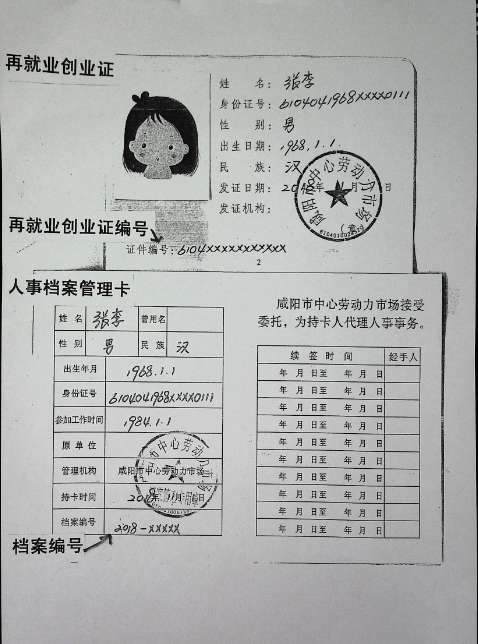 再就业创业证
姓 名：张李
身份证号：6104041968XXXX0111
性 别：男
出生日期：1968.1.1.
民 族：汉
发证日期：
发证机构：
咸阳市中心劳动力市场
再就业创业证编号
证件编号：6104XXXXXXXXXXX
2
人事档案管理卡
姓 名 张李 曾用名
性 别 男 民 族 汉
出生年月 1968.1.1
身份证号 6104041968XXXX0111
参加工作时间 1984.1.1
原 单 位
管理机构 咸阳市中心劳动力市场
持卡时间
档案编号 2018-XXXXX
档案编号
咸阳市中心劳动力市场接受
委托，为持卡人代理人事事务。
续 签 时 间 经手人
年 月 日至 年 月 日
年 月 日至 年 月 日
年 月 日至 年 月 日
年 月 日至 年 月 日
年 月 日至 年 月 日
年 月 日至 年 月 日
年 月 日至 年 月 日
年 月 日至 年 月 日
年 月 日至 年 月 日
年 月 日至 年 月 日